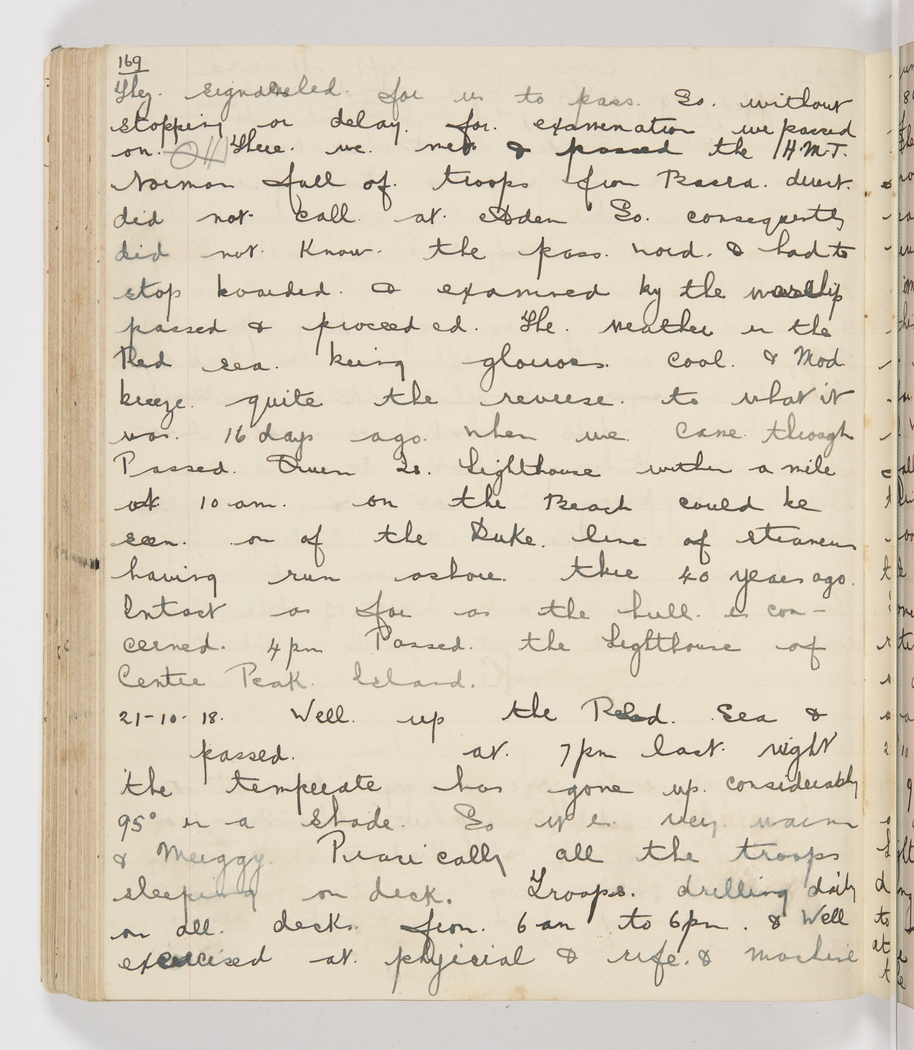 169
They. signaleled. for us to pass. So. without
stopping or delay. for. examination we passed
on. There. we. met & passed the H.M.T.
Norman full of. troops from Basra. direct.
did not call. at. Aden So. consequently
did not. Know. the pass. word. & had to
stop boarded. & examined by the warship
passed & proceed ed. The. weather in the
Red sea. being glorious. cool. & Mod
breeze. quite the reverse. to what it
was. 16 days ago. when we. came. through
Passed. Is. Lighthouse within a mile
at 10 am. on the Beach could be
seen. on of the Duke. line of steamers
having run ashore. thee 40 years ago.
Intact as far as the hull. is con-
cerned. 4 pm Passed. the Lighthouse of
Centre Peak. Island.
21-10-18. Well. up the Red. Sea &
passed. at. 7 pm last. night
the temperate has gone up. considerably
95° in a shade. So it is. very. warm
& Muggy. Practically all the troops
sleeping on deck. Troops. drilling daily
on all. decks. from. 6 am to 6 pm. & Well
exercised at. physicial & rife. & machine